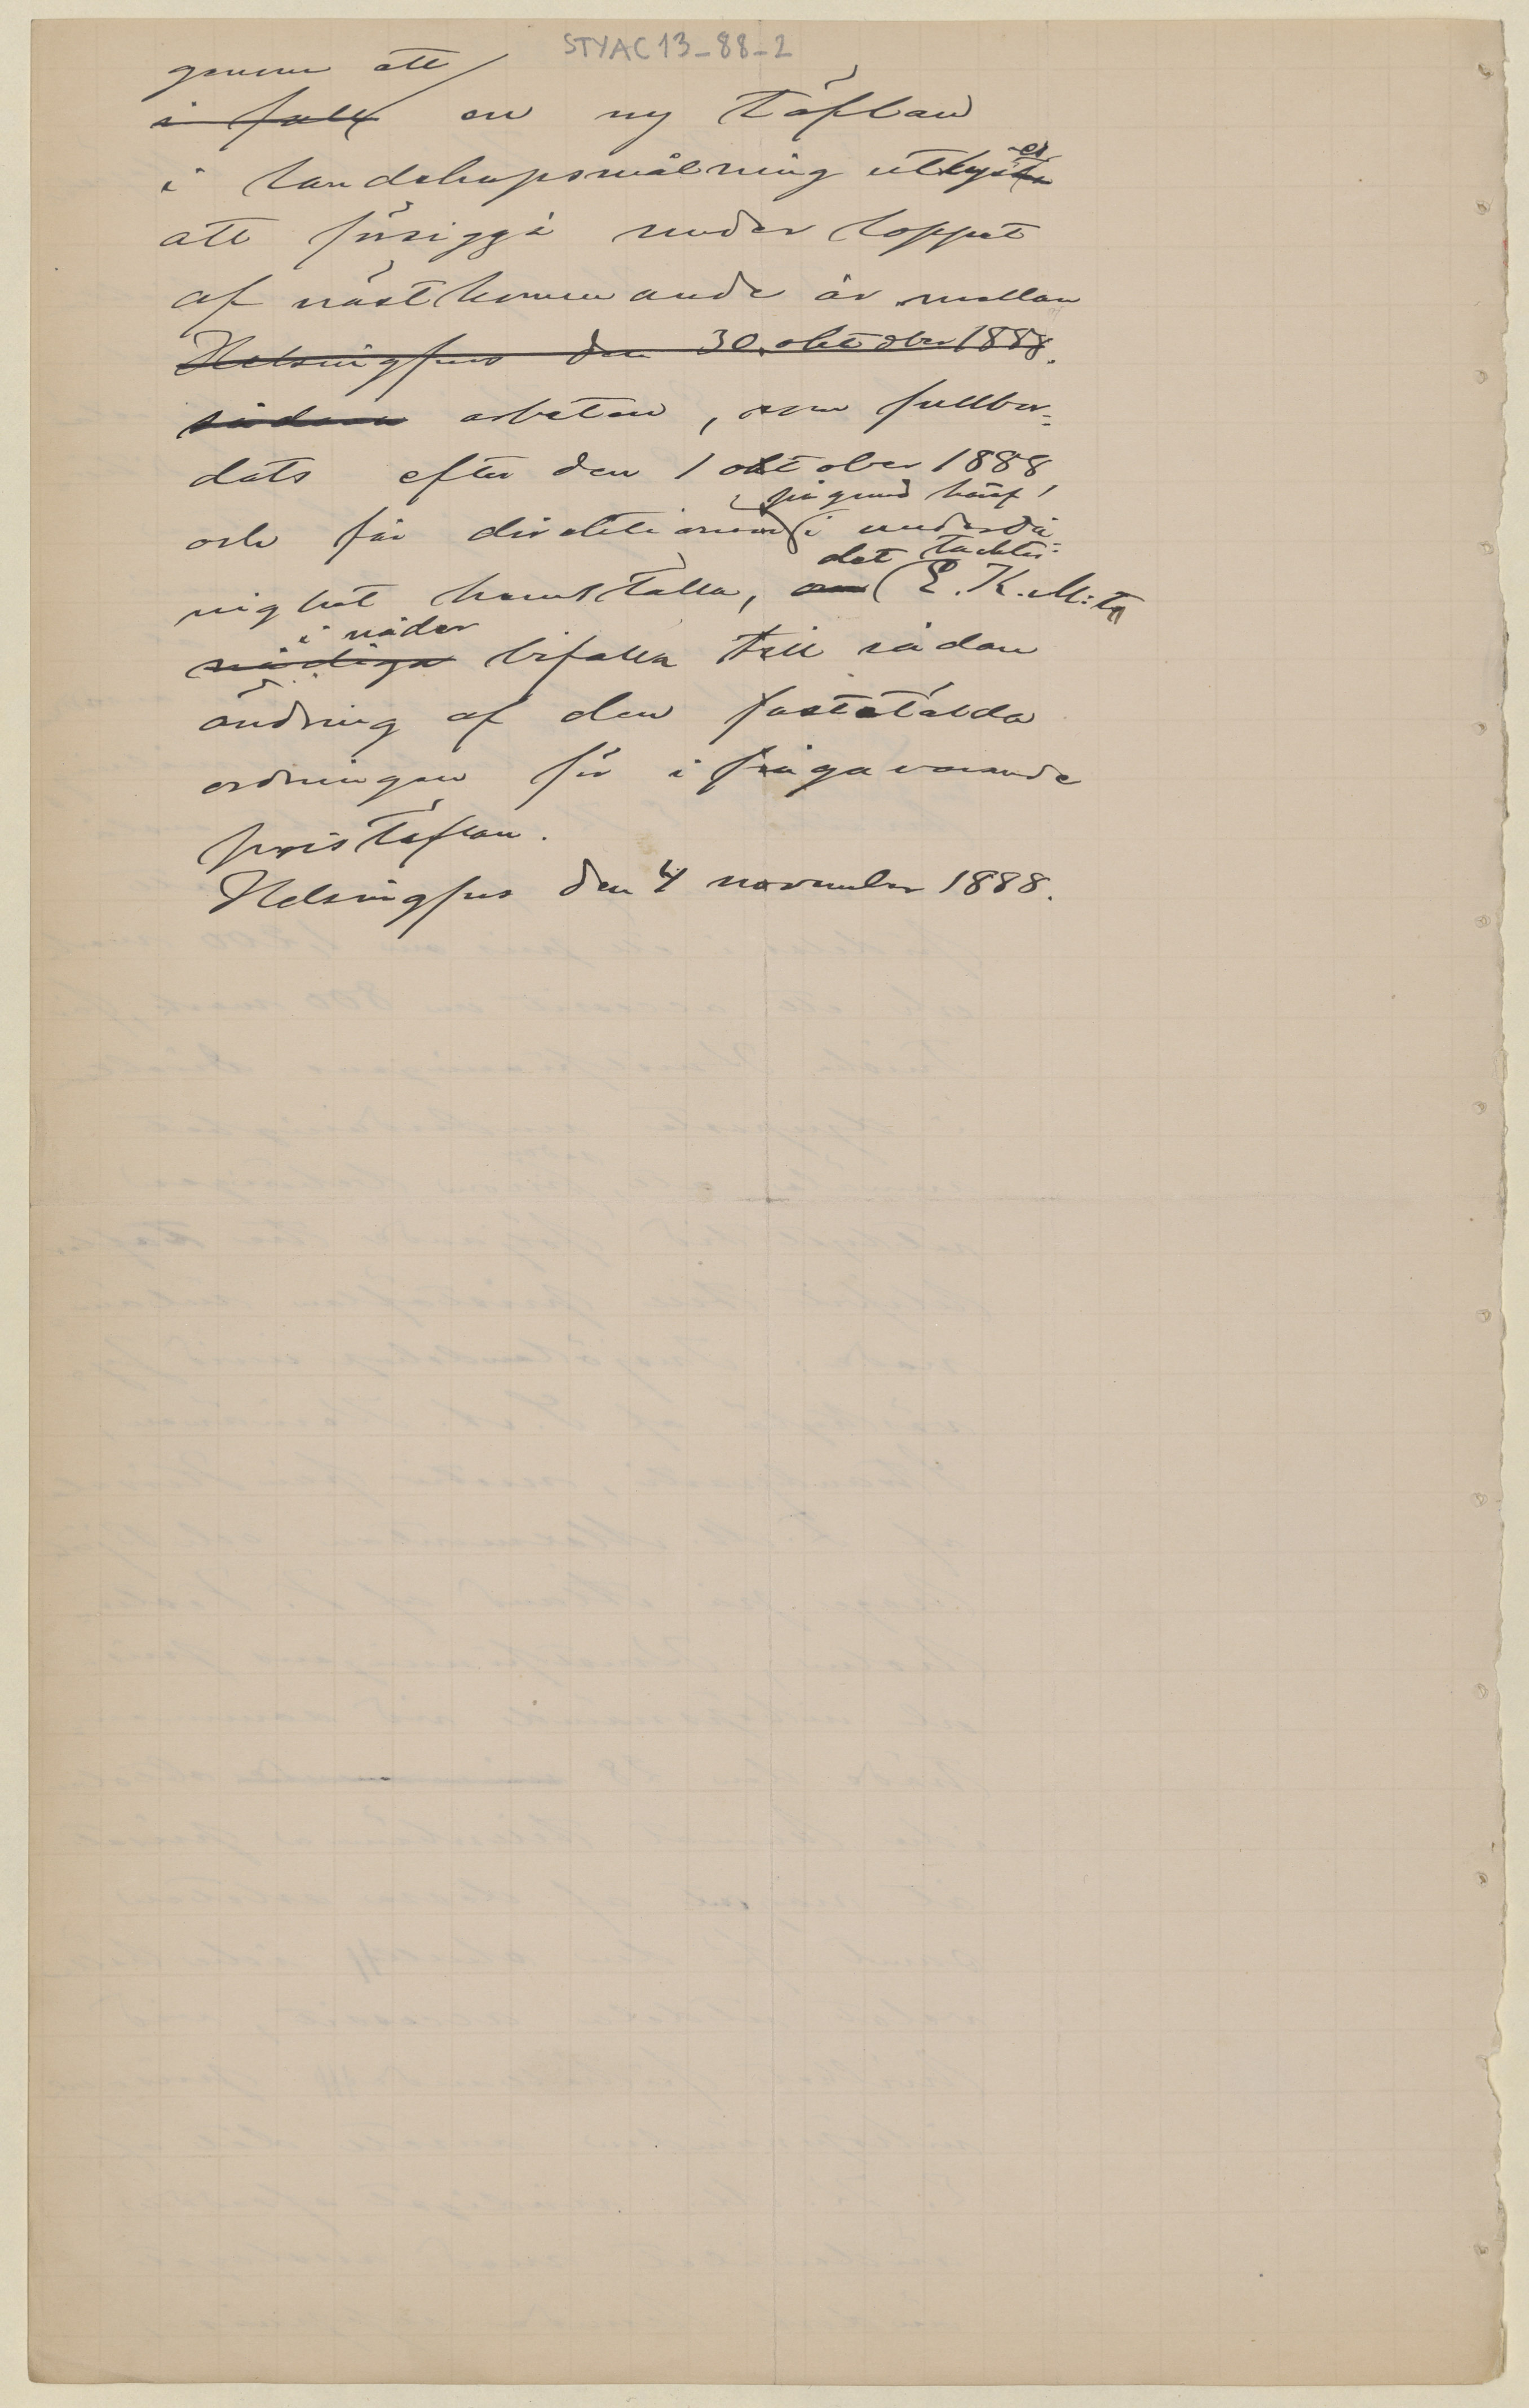 STYAC13-88-2
genom att
i fall en ny täflan
i landskapsmålning utlyses
att försiggå under loppet
af nästkommande år mellan
Helsingfors den 30 oktober 1888.
sådana arbeten, som fullbor-
dats efter den 1 oktober 1888
på grund häraf
och får direktionen i underdå-
nighet hemställa, om det täcktes E. K. M:t
i nåder
nådiga bifalla till sådan
ändring af den fastställda
ordningen för i fråga varande
pristäflan.
Helsingfors den 4 november 1888.